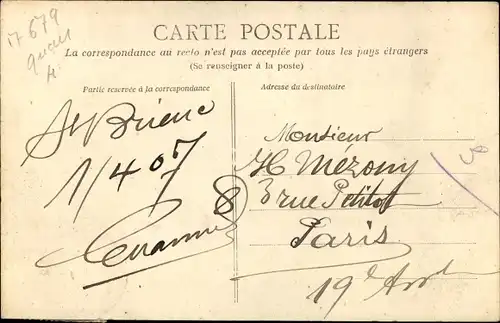 17679
CARTE POSTALE
La correspondance au recto n'est pas acceptée par tous les pays étrangers
(Se renseigner à la poste)
Partie reservée à la correspondance
Adresse du destinataire
St Brieuc
1/4 07
8
Monsieur
H Mézony
3 rue Petitot
Paris
19e Arrt